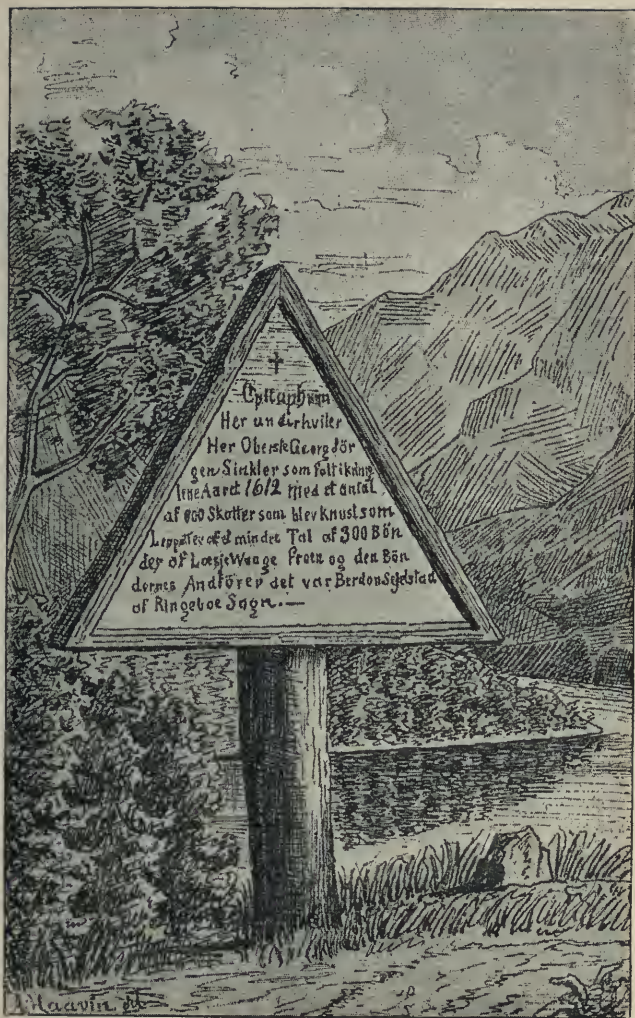 ✝
Epitaphium
Her underhviler
Her Oberste Georg Jör
gen Sinkler som falt i kring
lene Aaret 1612 med et antal
af 900 Skotter som blev knust som
Leppotter af et mindet Tal af 300 Bön
der af Loesje Waage Froen og den Bön
dernes Andförer det var Berdon Sejelstad
af Ringeboe Sogn.—
Haavin del